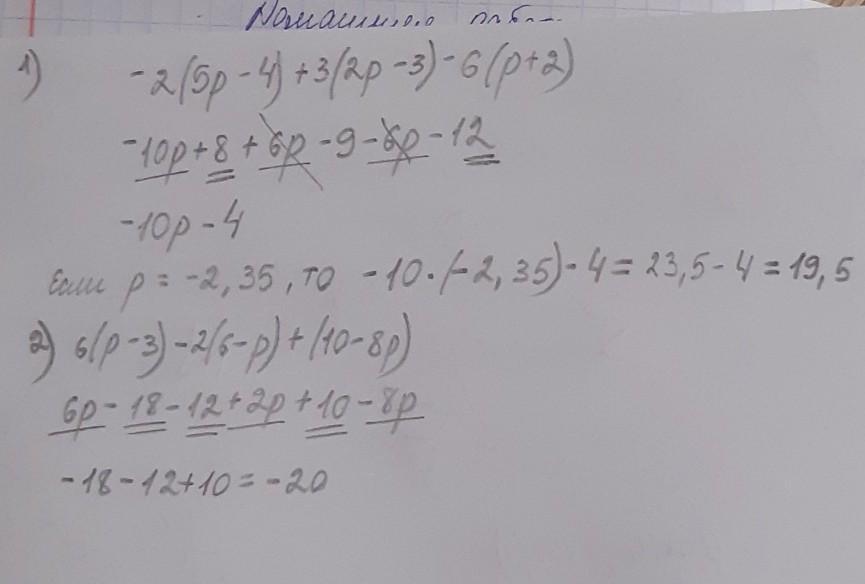 1) -2(5p-4)+3(2p-3)-6(p+2)
-10p+8+6p-9-6p-12
-10p-4
Если p = -2,35, то -10·(-2,35)-4=23,5-4=19,5
2) 6(p-3)-2(6-p)+(10-8p)
6p-18-12+2p+10-8p
-18-12+10=-20